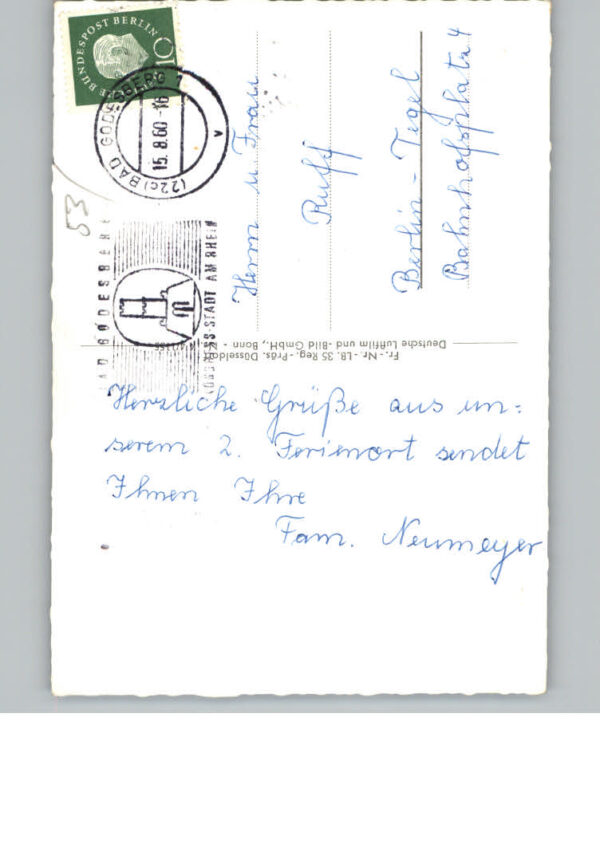 DEUTSCHE BUNDESPOST BERLIN
10
(22c) BAD GODESBERG 1
15.8.60-16
v
53
BAD GODESBERG
STADT AM RHEIN
Herrn u Frau
Ruff
Berlin-Tegel
Bahnhofsplatz 4
Deutsche Luftfilm und -Bild GmbH., Bonn
Fr.-Nr. LB. 35 Reg.-Präs. Düsseldorf
Herzliche Grüße aus un=
serem 2. Ferienort sendet
Ihnen Ihre
Fam. Neumeyer